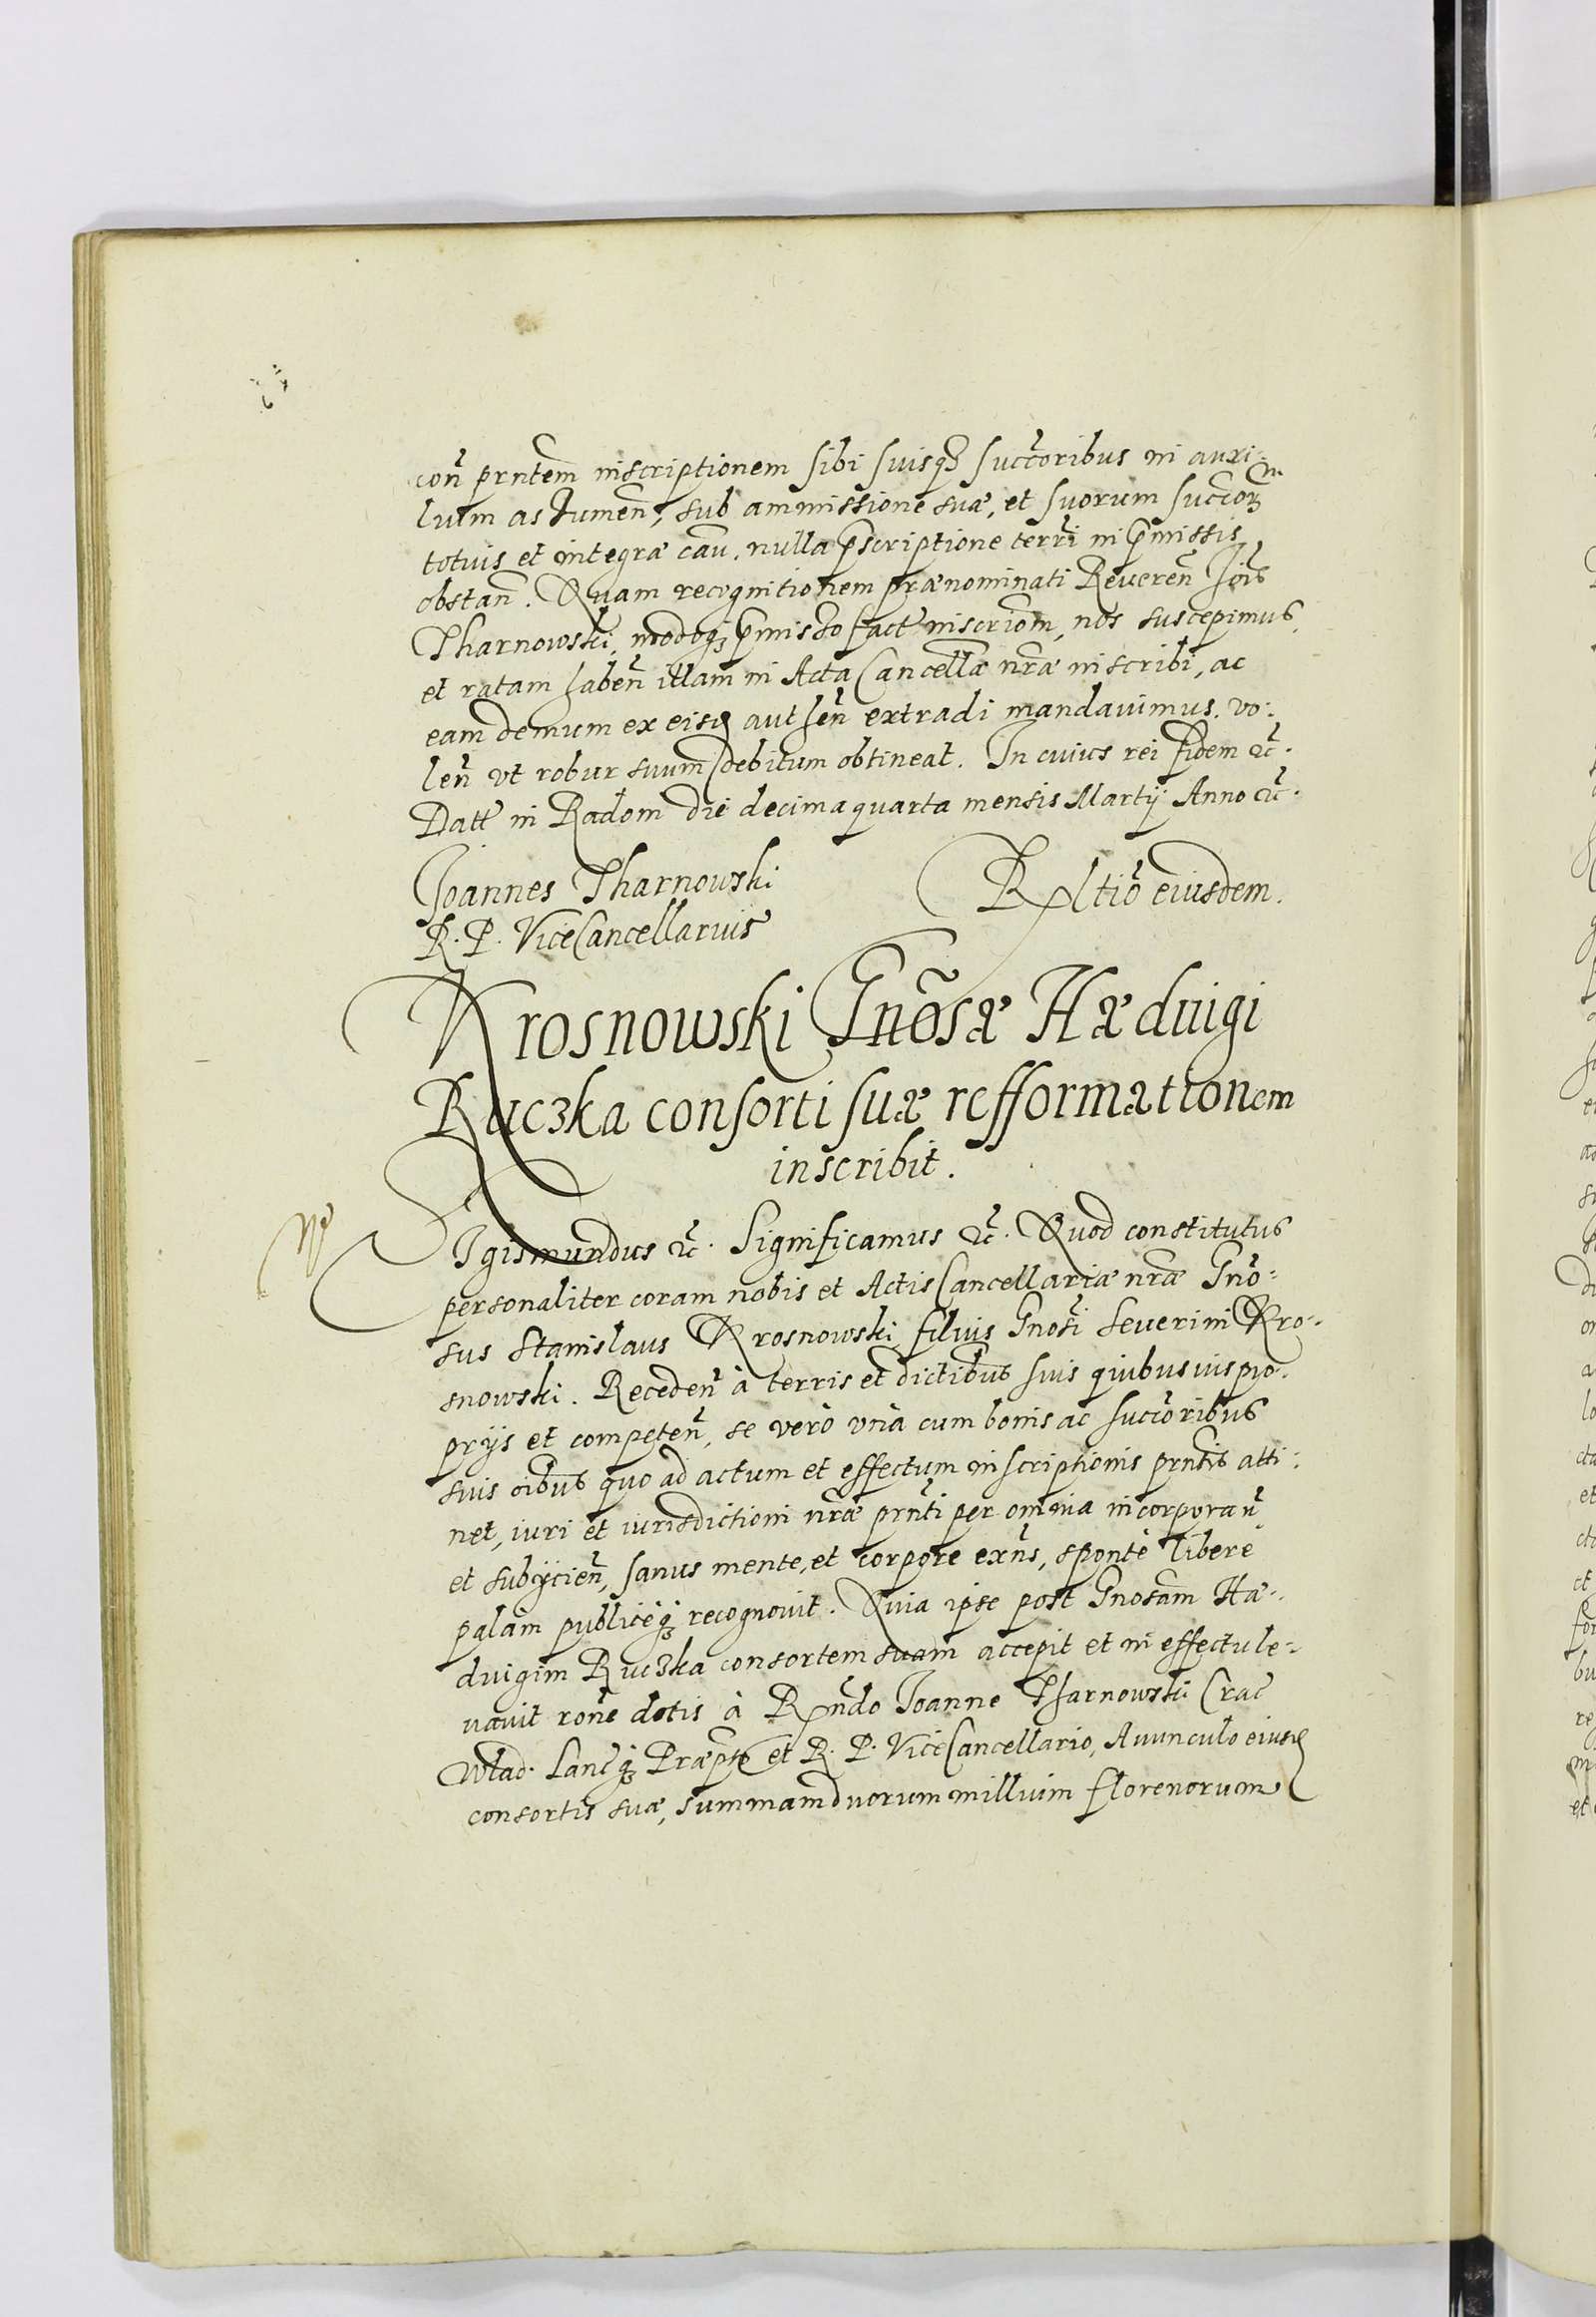 con̄ prntem inscriptionem sibi suisqȝ succ̄oribus in auxi-
lium assumen̄, sub ammissione suæ, et suorum succ̄orꝫ
totius et integræ cau. nulla p̄scriptione terr̄i in p̄missis
obstan̄. Quam recognitionem prænominati Reueren̄ Joīs
Tharnowski, modoqȝ p̄misso fact̄ inscriōm, nos suscepimus,
et ratam haben̄ illam in Acta Cancellæ nr̄æ inscribi, ac
eam demum ex eisd authen̄ extradi mandauimus. vo-
len̄ vt robur suum debitum obtineat. In cuius rei fidem ec̄.
Datt in Radom die decima quarta mensis Martij Anno ec̄.
Joannes Tharnowski
R. P. ViceCancellarius
Rltiō eiusdem.
Krosnowski Gnōsæ Hæduigi
Ruczka consorti suæ refformationem
inscribit.
Sigismundus ec̄. Significamus ec̄. Quod constitutus
personaliter coram nobis et Actis Cancellariæ nr̄æ Gnō-
sus Stanislaus Krosnowski filius Gnosi Seuerini Kro-
snowski. Receden̄ à terris et dictibus suis quibusuis pro-
prijs et competen̄, se verò vnà cum bonis ac succ̄oribus
suis oībus quo ad actum et effectum inscriptionis prn̄tis atti-
net, iuri et iurisdictioni nr̄æ prn̄ti per omnia incorporan̄
et subijcien̄, sanus mente, et corpore exn̄s, spontè liberè
palàm publicèqȝ recognouit. Quia ipse post Gnosam Hæ-
duigim Ruczka consortem suam accepit et in effectu le-
uauit ron̄e dotis à Rn̄do Joanne Tharnowski Crac̄
Wlad. Lanc̄qȝ Præpto et R. P. ViceCancellario, Auunculo eiusd
consortis suæ, summam duorum millium florenorum